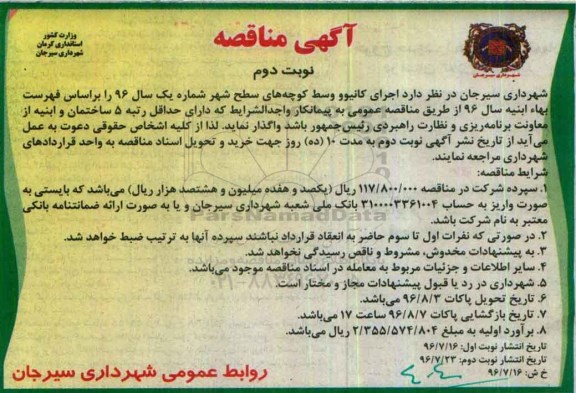 وزارت کشور
استانداری کرمان
شهرداری سیرجان
آگهی مناقصه
شهرداری سیرجان
نوبت دوم
شهرداری سیرجان در نظر دارد اجرای کانیوو وسط کوچه‌های سطح شهر شماره یک سال ۹۶ را براساس فهرست
بهاء ابنیه سال ۹۶ از طریق مناقصه عمومی به پیمانکار واجدالشرایط که دارای حداقل رتبه ۵ ساختمان و ابنیه از
معاونت برنامه‌ریزی و نظارت راهبردی رئیس‌جمهور باشد واگذار نماید. لذا از کلیه اشخاص حقوقی دعوت به عمل
می‌آید از تاریخ نشر آگهی نوبت دوم به مدت ۱۰ (ده) روز جهت خرید و تحویل اسناد مناقصه به واحد قراردادهای
شهرداری مراجعه نمایند.
شرایط مناقصه:
۱. سپرده شرکت در مناقصه ۱۱۷/۸۰۰/۰۰۰ ریال (یکصد و هفده میلیون و هشتصد هزار ریال) می‌باشد که بایستی به
صورت واریز به حساب ۳۱۰۰۰۰۳۳۶۱۰۰۴ بانک ملی شعبه شهرداری سیرجان و یا به صورت ارائه ضمانتنامه بانکی
معتبر به نام شرکت باشد.
۲. در صورتی که نفرات اول تا سوم حاضر به انعقاد قرارداد نباشند سپرده آنها به ترتیب ضبط خواهد شد.
۳. به پیشنهادات مخدوش، مشروط و ناقص رسیدگی نخواهد شد.
۴. سایر اطلاعات و جزئیات مربوط به معامله در اسناد مناقصه موجود می‌باشد.
۵. شهرداری در رد یا قبول پیشنهادات مجاز و مختار است.
۶. تاریخ تحویل پاکات ۹۶/۸/۳ می‌باشد.
۷. تاریخ بازگشایی پاکات ۹۶/۸/۷ ساعت ۱۷ می‌باشد.
۸. برآورد اولیه به مبلغ ۲/۳۵۵/۵۷۴/۸۰۴ ریال می‌باشد.
تاریخ انتشار نوبت اول: ۹۶/۷/۱۶
تاریخ انتشار نوبت دوم: ۹۶/۷/۲۳
خ ش: ۹۶/۷/۱۶
روابط عمومی شهرداری سیرجان
ParsNamadData